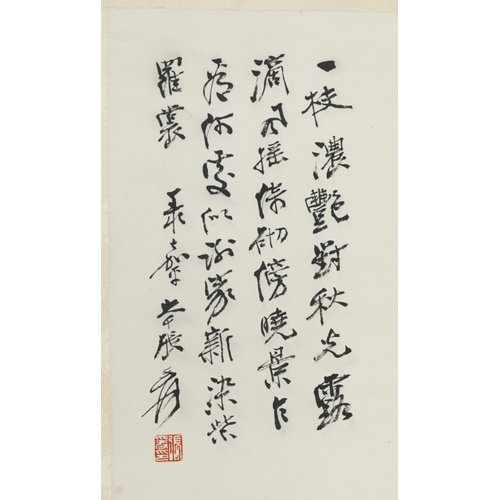 一枝濃艷對秋光露
滴風搖倚砌傍曉景乍
看何處似謝家新染紫
羅裳 大千張爰